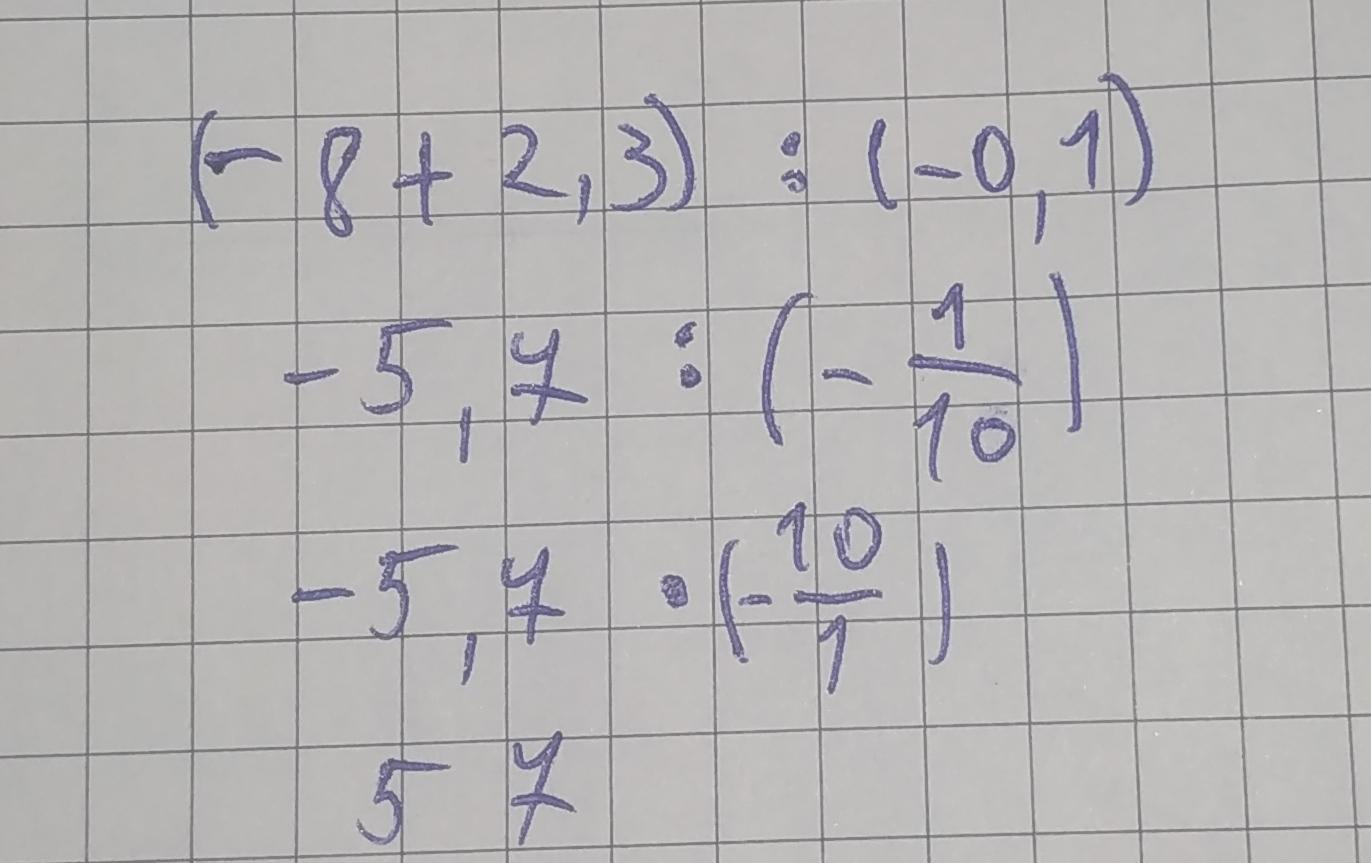 (- 8 + 2,3) : (-0,1)
-5,7 : (- 1/10)
-5,7 • (- 10/1)
57